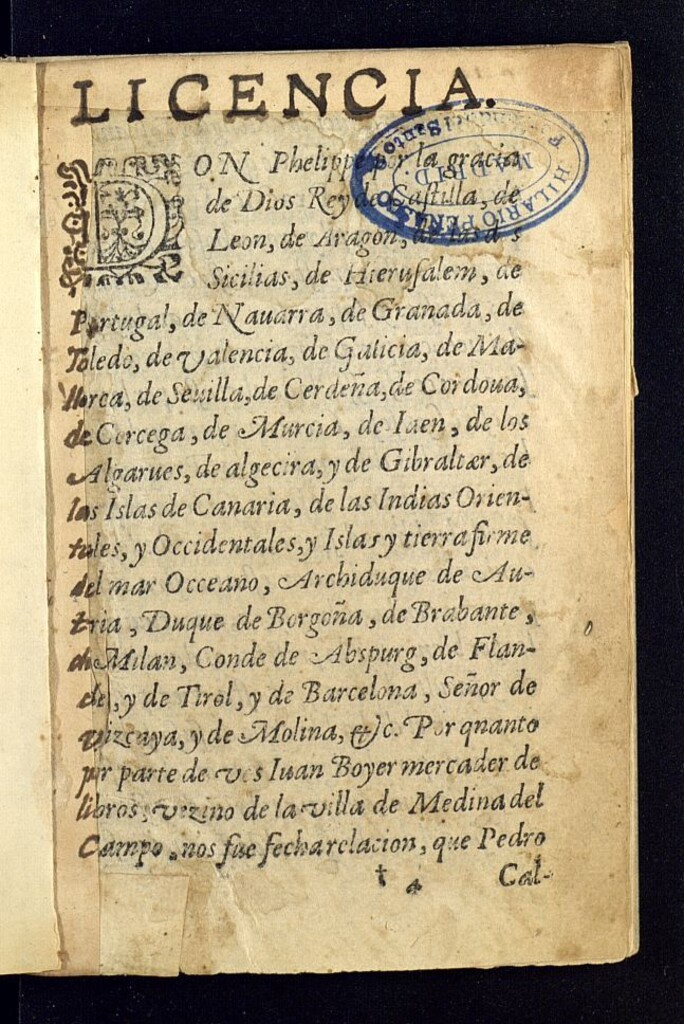 LICENCIA.
DON Phelippe por la gracia
de Dios Rey de Castilla, de
Leon, de Aragon, de las d s
Sicilias, de Hierusalem, de
Portugal, de Nauarra, de Granada, de
Toledo, de Valencia, de Galicia, de Ma-
llorca, de Seuilla, de Cerdeña, de Cordoua,
de Corcega, de Murcia, de Iaen, de los
Algarues, de algecira, y de Gibraltar, de
las Islas de Canaria, de las Indias Orien-
tales, y Occidentales, y Islas y tierra firme
del mar Occeano, Archiduque de Au-
tria, Duque de Borgoña, de Brabante,
de Milan, Conde de Abspurg, de Flan-
des, y de Tirol, y de Barcelona, Señor de
vizcaya, y de Molina, &c. Por qnanto
por parte de vos Iuan Boyer mercader de
libros, vezino de la villa de Medina del
Campo, nos fue fecha relacion, que Pedro
Cal-
HILARIO PEÑASCO
MADRID